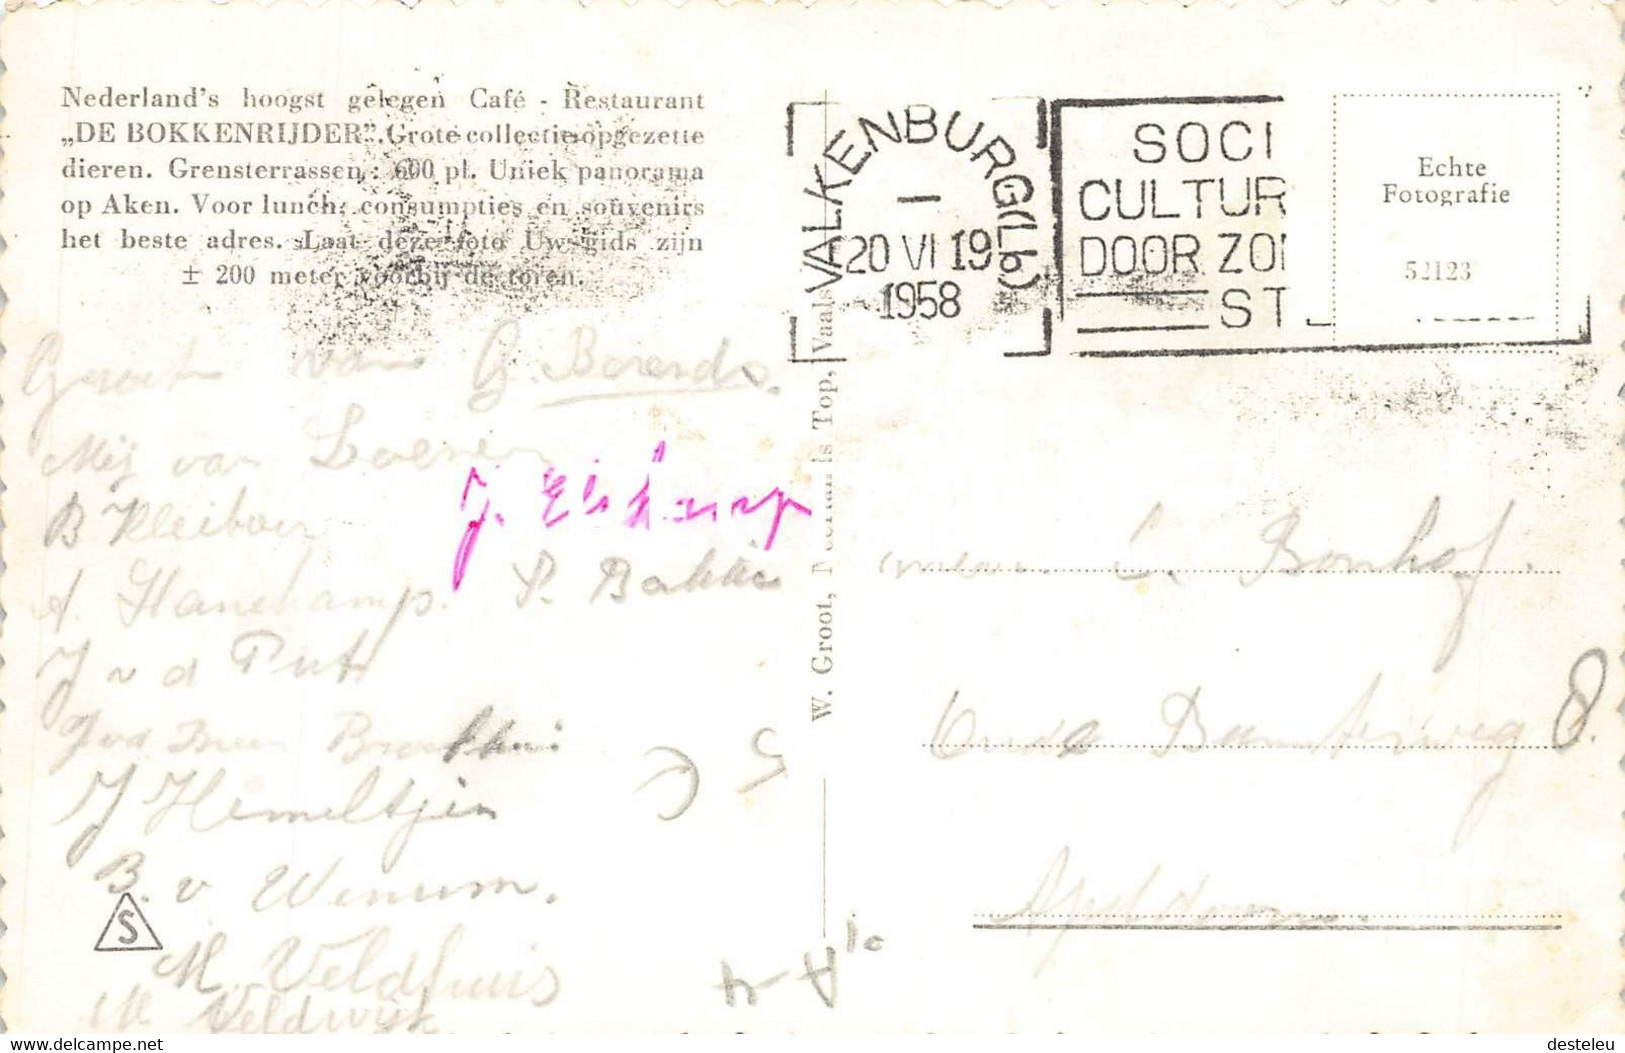 Nederland's hoogst gelegen Café - Restaurant
„DE BOKKENRIJDER". Grote collectie opgezette
dieren. Grensterrassen: 600 pl. Uniek panorama
op Aken. Voor lunch, consumpties en souvenirs
het beste adres. Laat deze foto Uw gids zijn
± 200 meter voorbij de toren.
VALKENBURG (Lb)
20 VI 19
1958
SOCI
CULTUR
DOOR ZOI
ST
Echte
Fotografie
52123
van G. Barends.
Mej van
J. Elskamp
B Kleiboer
A. Hanekamp. P. Bakker
J v d Put
J Hemeltjen
B. v Wenum.
M. Veldhuis
M Veldwijk
S
W. Groot, Top, Vaals
C. Bonhof.
Oude 8.
Apeldoorn.
www.delcampe.net
desteleu